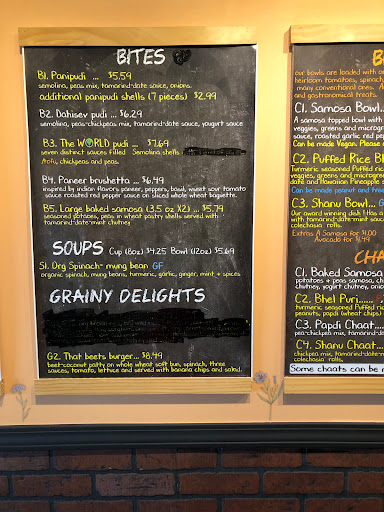 BITES
B1. Panipudi ... $5.59
semolina, pea mix, tamarind-date sauce, onions.
additional panipudi shells (7 pieces) $2.99
B2. Dahisev pudi ... $6.29
semolina, peas-chickpeas mix, tamarind-date sauce, yogurt sauce
B3. The WORLD pudi ... $7.69
seven distinct sauces filled Semolina shells
tofu, chickpeas and peas.
B4. Paneer brushetta ... $6.49
inspired by indian flavors paneer, peppers, basil, sweet sour tomato
sauce roasted red pepper sauce on sliced whole wheat baguette.
B5. Large baked samosa (3.5 oz X2) .. $5.79
seasoned potatoes, peas in wheat pastry shells served with
tamarind-date-mint chutney
SOUPS Cup (8oz) $4.25 Bowl (12oz) $5.69
S1. Org Spinach- mung bean GF
organic spinach, mung beans, turmeric, garlic, ginger, mint + spices
GRAINY DELIGHTS
G2. That beets burger... $8.49
beet-coconut patty on whole wheat soft bun, spinach, three
sauces, tomato, lettuce and served with banana chips and salad.
B
our bowls are loaded with
heirloom tomatoes, spinach
many conventional ones.
and gastronomical treats.
C1. Samosa Bowl..
A samosa topped bowl with
veggies, greens and microgre
sauce, roasted garlic red pep
Can be made Vegan. Please
C2. Puffed Rice Bl
turmeric seasoned Puffed rice
veggies, greens and microgree
date and Hawaiian Pineapple s
Can be made peanut and tree
C3. Shanu Bowl... G
Our award winning dish ! Has a
with tamarind-date-mint sauce
colechasia rolls.
Extras A Samosa for $1.00
Avocado for $1.49
CHA
C1. Baked Samosa
potatoes + peas samosa, chi
chutney, yogurt chutney, onio
C2. Bhel Puri......
turmeric seasoned Puffed ric
peanuts, papdi (wheat chips)
C3. Papdi Chaat....
pea-chickpea mix, tamarind-date-m
C4. Shanu Chaat...
chickpea mix, tamarind-date-m
colechasia rolls.
Some chaats can be m